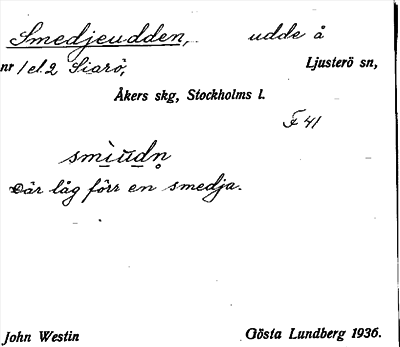 Smedjeudden, udde å
nr 1 el. 2 Siarö, Ljusterö sn,
Åkers skg, Stockholms l.
F 41
smìudn̥
Där låg förr en smedja.
John Westin Gösta Lundberg 1936.